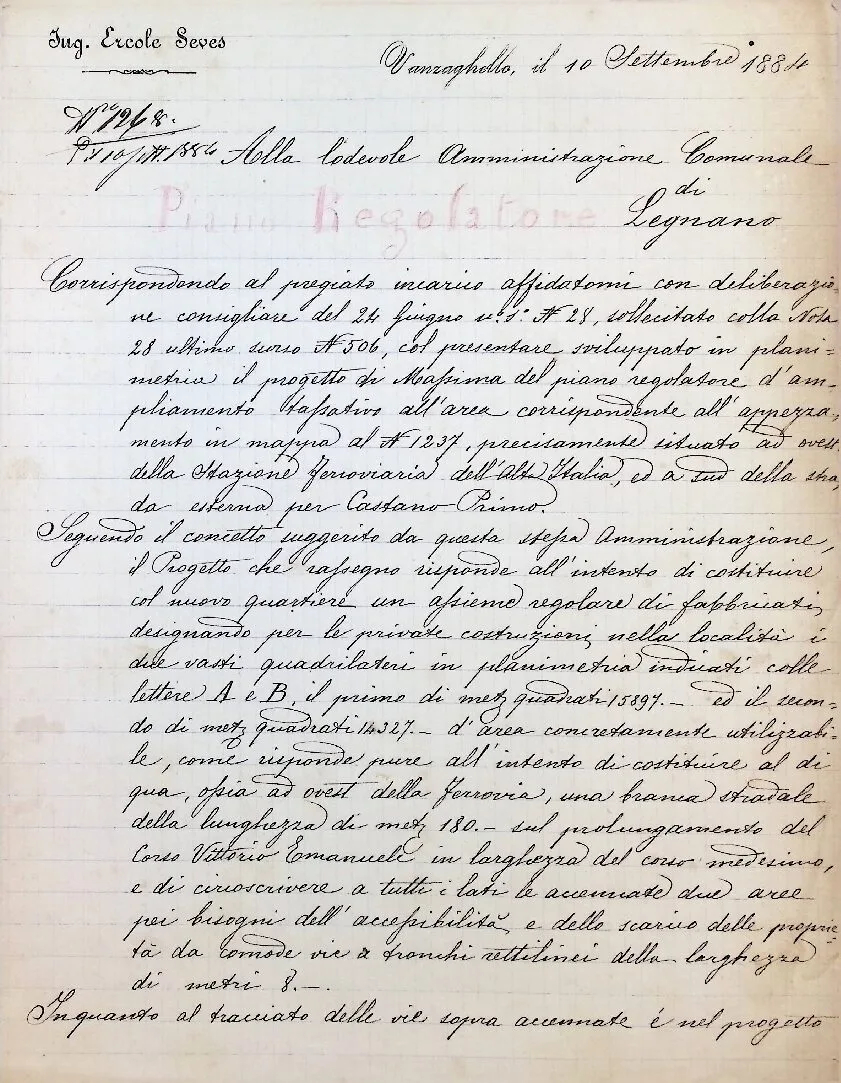 Ing. Ercole Seves
Vanzaghello, il 10 Settembre 1884
N.º 1268.
P 10 1884 Alla lodevole Amministrazione Comunale
di
Piano Regolatore Legnano
Corrispondendo al pregiato incarico affidatomi con deliberazio-
ne consigliare del 24 Giugno u.º s.º N 28, sollecitato colla Nota
28 ultimo scorso N 506, col presentare sviluppato in plani=
metria il progetto di Massima del piano regolatore d'am-
pliamento tassativo all'area corrispondente all'appezza-
mento in mappa al N 1237, precisamente situato ad ovest
della Stazione Ferroviaria dell'Alta Italia, ed a sud della stra-
da esterna per Castano Primo.
Seguendo il concetto suggerito da questa stessa Amministrazione,
il Progetto che rassegno risponde all'intento di costituire
col nuovo quartiere un assieme regolare di fabbricati,
designando per le private costruzioni nella località i
due vasti quadrilateri in planimetria indicati colle
lettere A e B, il primo di met. quadrati 15897.- ed il secon-
do di met. quadrati 14327.- d'area concretamente utilizzabi-
le, come risponde pure all'intento di costituire al di
qua, ossia ad ovest della Ferrovia, una branca stradale
della lunghezza di met. 180.- sul prolungamento del
Corso Vittorio Emanuele in larghezza del corso medesimo,
e di circoscrivere a tutti i lati le accennate due aree
pei bisogni dell'accessibilità e dello scarico delle proprie-
tà da comode vie a tronchi rettilinei della larghezza
di metri 8.-.
Inquanto al tracciato delle vie sopra accennate é nel progetto